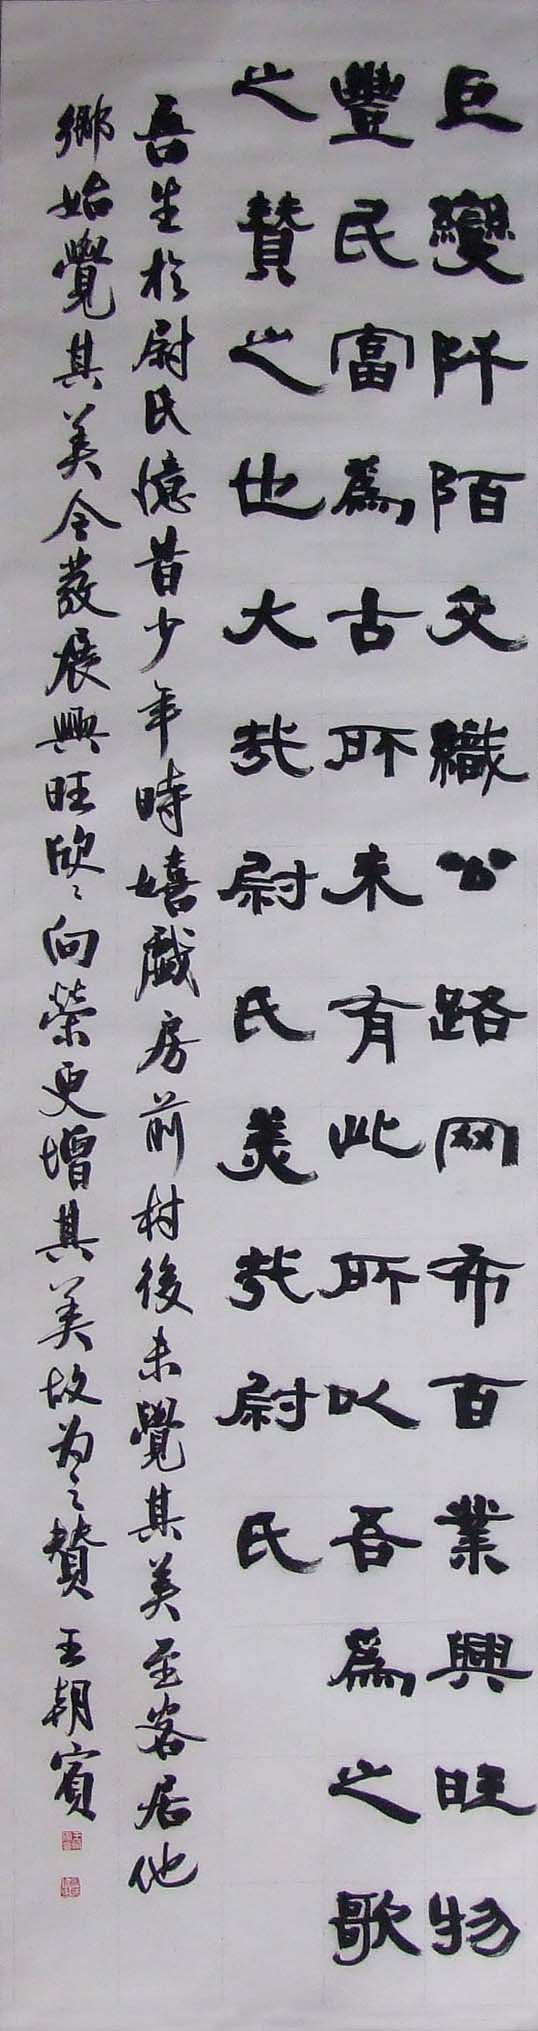 巨變阡陌交織公路网布百業興旺物
豐民富為古所未有此所以吾為之歌
之贊之也大哉尉氏美哉尉氏
吾生於尉氏憶昔少年時嬉戲房前村後未覺其美至客居他
鄉始覺其美今發展興旺欣欣向榮更增其美故为之贊王朝賓